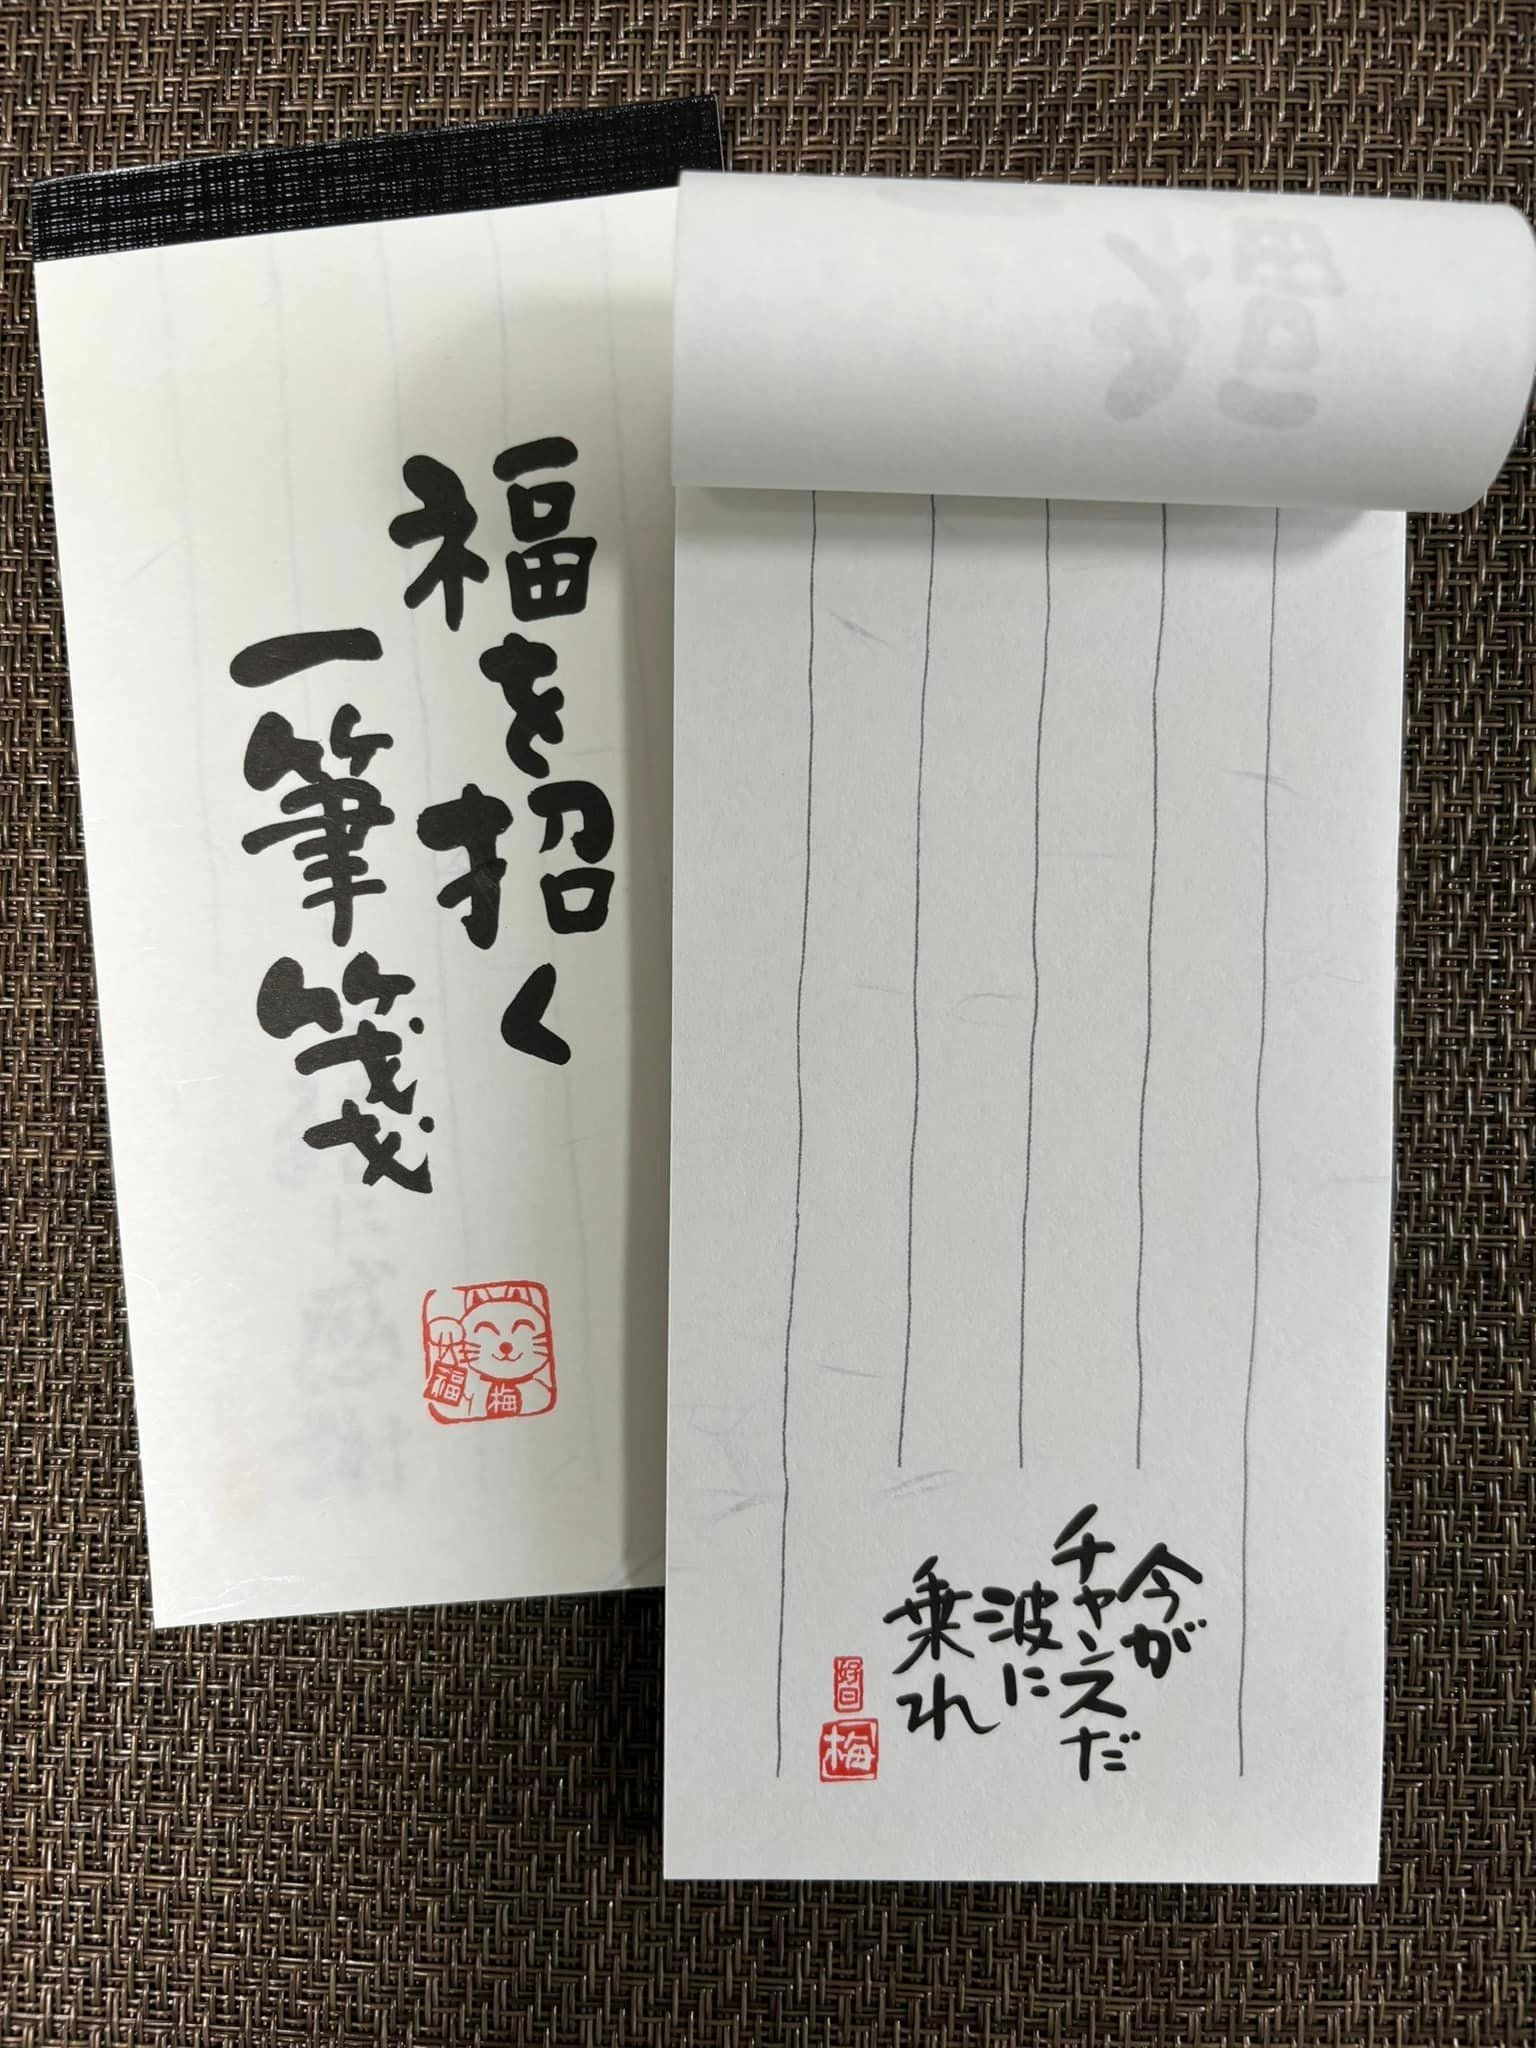 福を招く
一筆箋
福
梅
今が
チャンスだ
波に
乗れ
梅